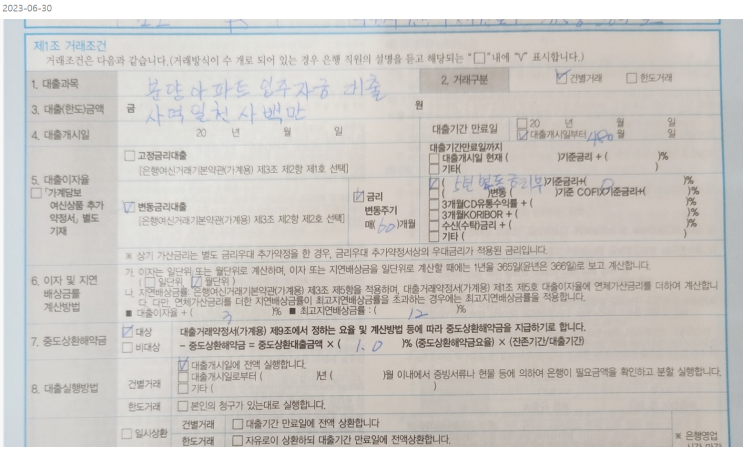 2023-06-30
제1조 거래조건
거래조건은 다음과 같습니다.(거래방식이 수 개로 되어 있는 경우 은행 직원의 설명을 듣고 해당되는 "□"내에 "V" 표시합니다.)
1. 대출과목 분양아파트 입주자금 대출 2. 거래구분 ☑건별거래 □한도거래
3. 대출(한도)금액 금 사억일천사백만 원
4. 대출개시일 20 년 월 일 대출기간 만료일 □20 년 월 일
☑대출개시일부터 480 월 일
5. 대출이자율
□「가계담보
여신상품 추가
약정서」별도
기재
□고정금리대출
[은행여신거래기본약관(가계용) 제3조 제2항 제1호 선택]
대출기간만료일까지
□대출개시일 현재 ( )기준금리 + ( )%
□기타( )
☑변동금리대출
[은행여신거래기본약관(가계용) 제3조 제2항 제2호 선택]
☑금리
변동주기
매(60)개월
☑(5년변동금리부)기준금리+( 0 )%
□( )변동 ( )기준 COFIX기준금리+( )%
□3개월CD유통수익률 + ( )%
□3개월KORIBOR + ( )%
□수신(수탁)금리 + ( )%
□기타 ( )
※ 상기 가산금리는 별도 금리우대 추가약정을 한 경우, 금리우대 추가약정서상의 우대금리가 적용된 금리입니다.
6. 이자 및 지연
배상금률
계산방법
가. 이자는 일단위 또는 월단위로 계산하며, 이자 또는 지연배상금을 일단위로 계산할 때에는 1년을 365일(윤년은 366일)로 보고 계산합니다.
(□일단위 ☑월단위)
나. 지연배상금률: 은행여신거래기본약관(가계용) 제3조 제5항을 적용하며, 대출거래약정서(가계용) 제1조 제5호 대출이자율에 연체가산금리를 더하여 계산합니
다. 다만, 연체가산금리를 더한 지연배상금률이 최고지연배상금률을 초과하는 경우에는 최고지연배상금률을 적용합니다.
■ 대출이자율 + ( 3 )% ■ 최고지연배상금률 : ( 12 )%
7. 중도상환해약금
☑대상
□비대상
대출거래약정서(가계용) 제9조에서 정하는 요율 및 계산방법 등에 따라 중도상환해약금을 지급하기로 합니다.
– 중도상환해약금 = 중도상환대출금액 × ( 1.0 )% (중도상환해약금요율) × (잔존기간/대출기간)
8. 대출실행방법
건별거래
☑대출개시일에 전액 실행합니다.
□대출개시일로부터 ( )년 ( )월 이내에서 증빙서류나 현물 등에 의하여 은행이 필요금액을 확인하고 분할 실행합니다.
□기타 ( )
한도거래 □본인의 청구가 있는대로 실행합니다.
□일시상환
건별거래 □대출기간 만료일에 전액 상환합니다
한도거래 □자유로이 상환하되 대출기간 만료일에 전액상환합니다.
※ 은행영업